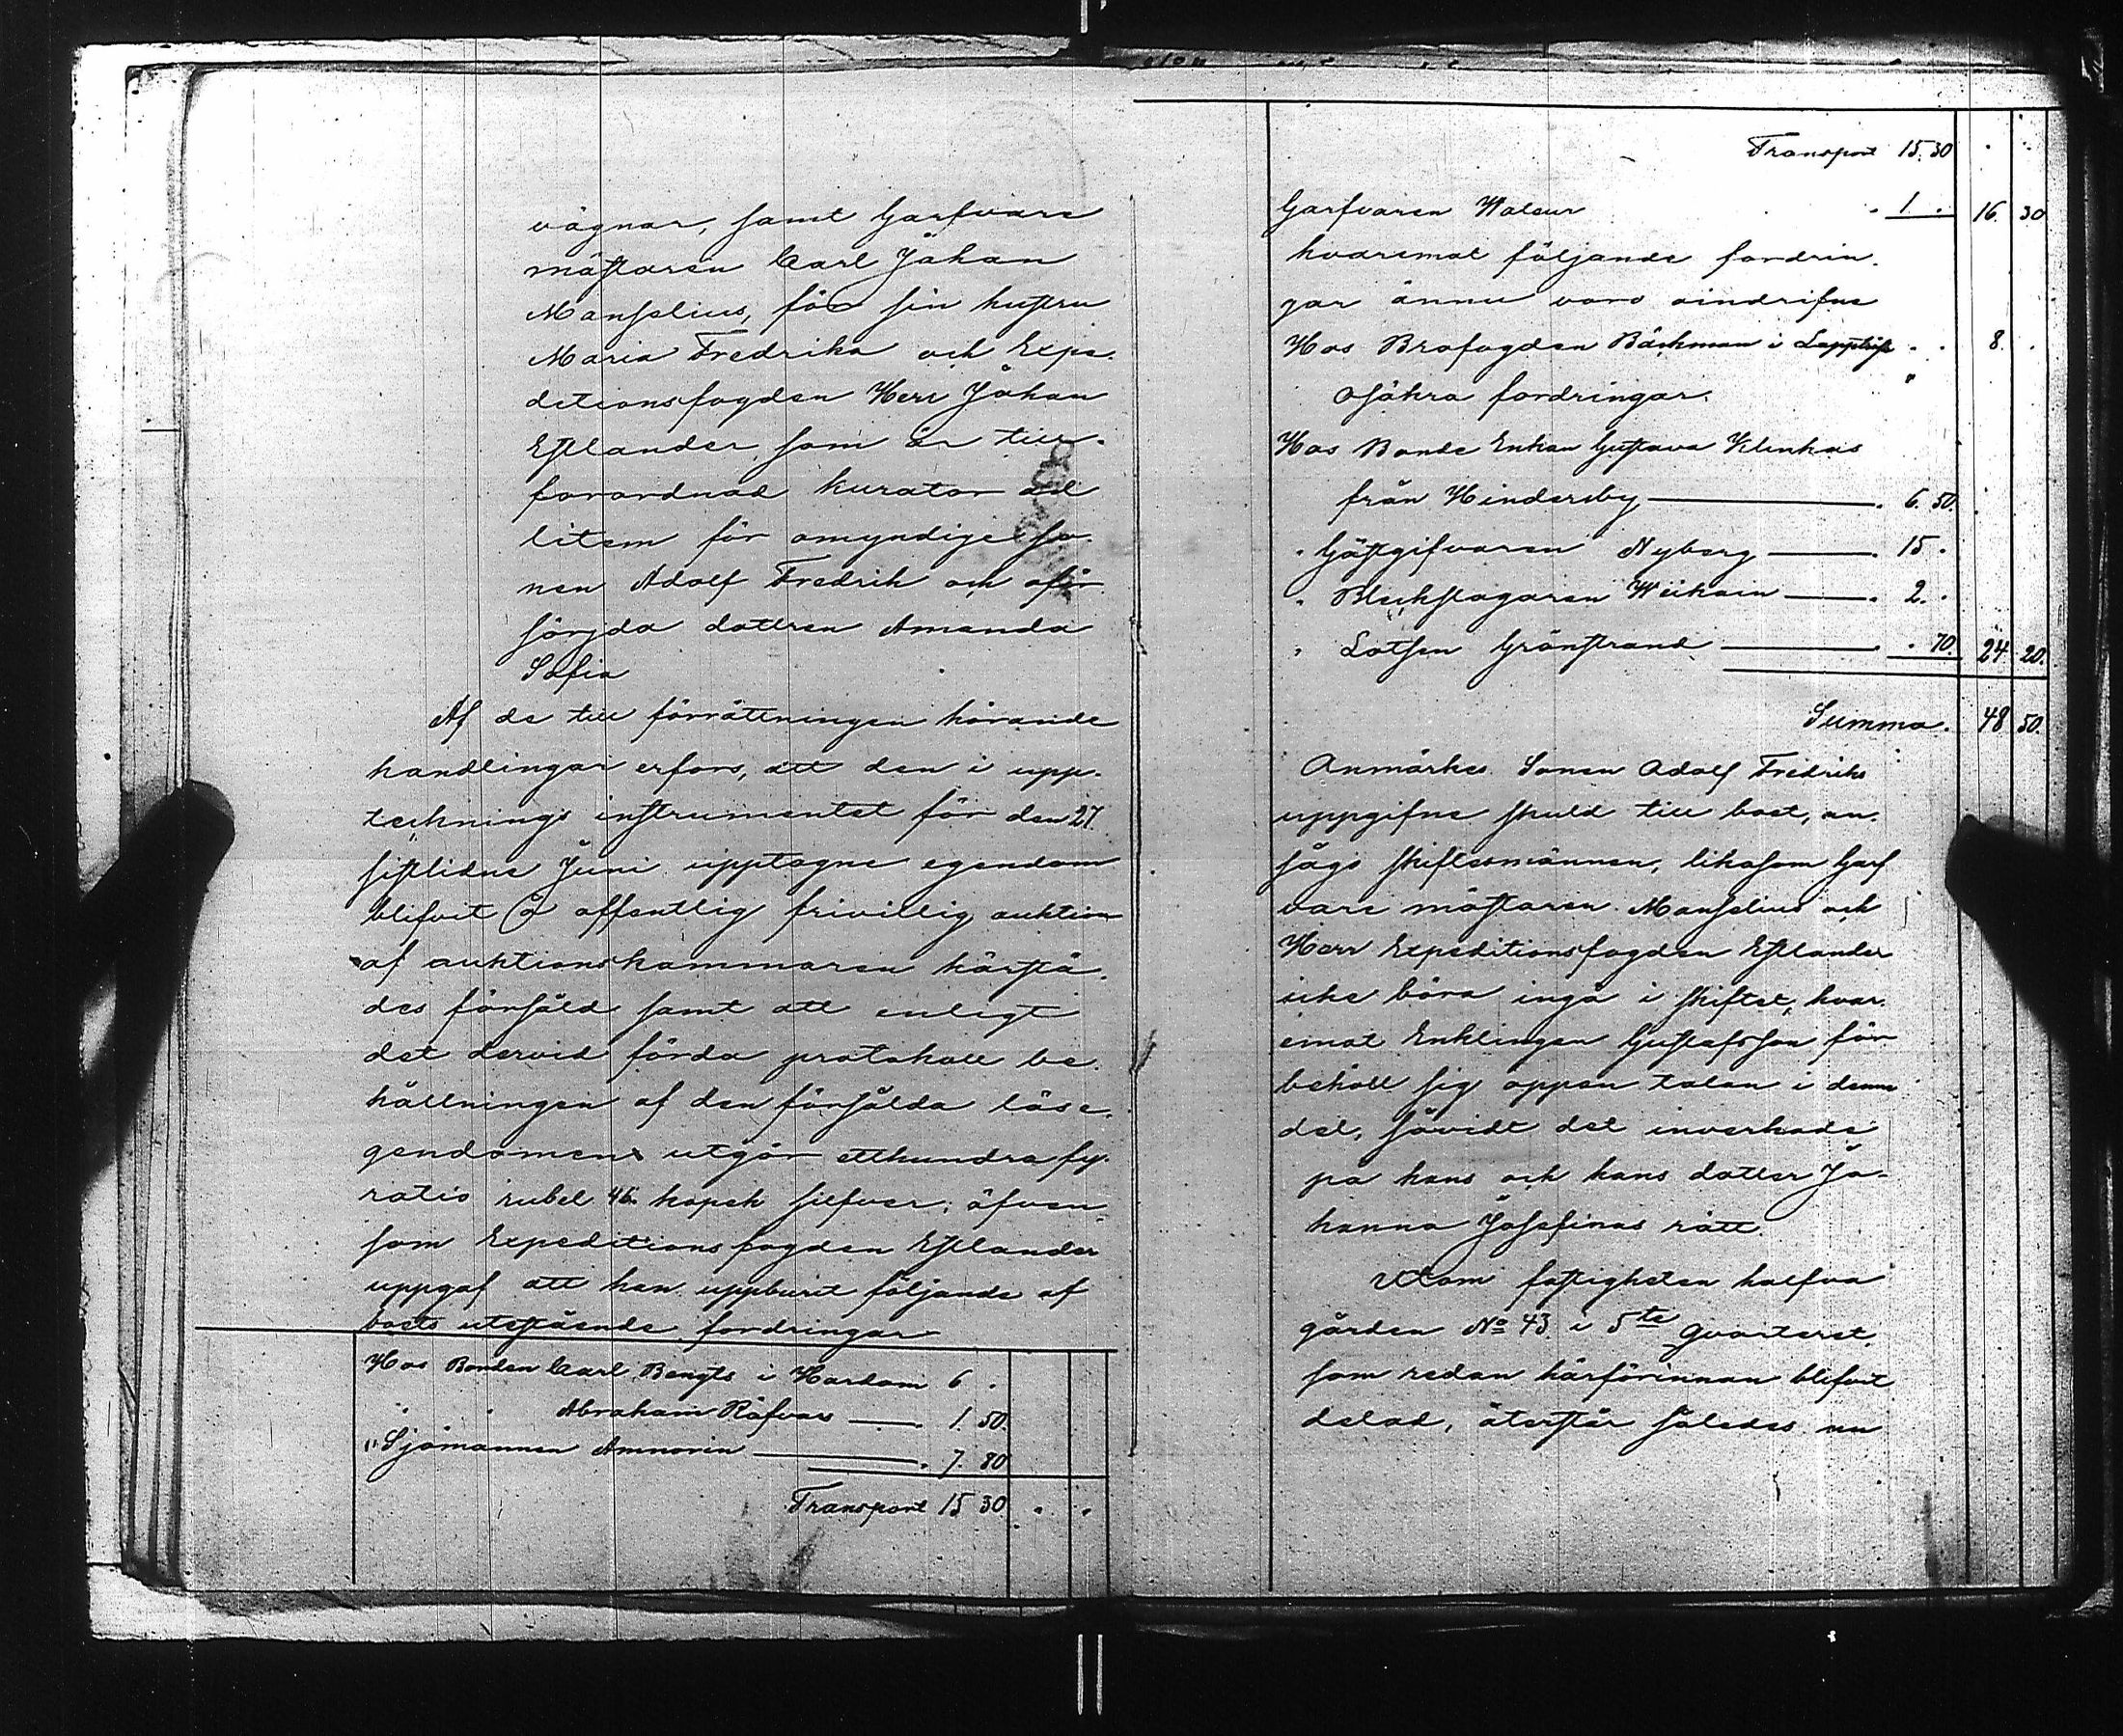 vägnar, samt Garfvare
mästaren Carl Johan
Manselius, för sin hustru
Maria Fredrika och Expe-
ditionsfogden Herr Johan
Estlander, som är till-
forordnad kurator ad
litem för omyndige so-
nen Adolf Fredrik och oför-
sörjda dottren Amanda
Sofia
Af de till förrättningen hörande
handlingar erfors, att den i upp-
tecknings instrumentet för den 27.
sistlidne Juni upptagne egendom
blifvit å offentlig frivillig auktion
af auktionskammaren härstä-
des försåld samt att enligt
det dervid förda protokoll be-
hållningen af den försålda löse-
gendomen utgör etthundra fy-
ratio rubel 46 kopek silfver; äfven-
som Expeditionsfogden Estlander
uppgaf att han uppburit följande af
boets utestående fordringar
Hos Bonden Carl Bengts i Hardom 6 .
" " Abraham Räfvars — 1. 50.
" Sjömannen Amnorin — 7. 80
Transport 15 30 " "
Transport 15. 30 " "
Garfvaren Waleur " 1. " 16. 30
hvaremot följande fordrin-
gar ännu voro oindrifne
Hos Brofogden Bäckman i " " 8. "
Osäkra fordringar.
Hos Bonde Enkan Gustava Klinkas
från Hindersby — " 6. 50.
" Gästgifvaren Nyberg — " 15 "
" Bleckslagaren Weikain — " 2. "
" Lotsen Grönstrand — " " 70 24 20.
Summa. 48 50.
Anmärkes Sonen Adolf Fredriks
uppgifne skuld till boet, an-
sågs skiftesmännen, likasom Garf
vare mästaren Manselius och
Herr Expeditionsfogden Estlander
icke böra ingå i skiftet, hvar-
emot Enklingen Gustafsson för
behöll sig öppen talan i denna
del, såvidt det inverkade
på hans och hans dotter Jo-
hanna Josefinas rätt.
Utom fastigheten halfva
gården No 43 i 5te Qvarteret
som redan härförinnan blifvit
delad, återstår således nu